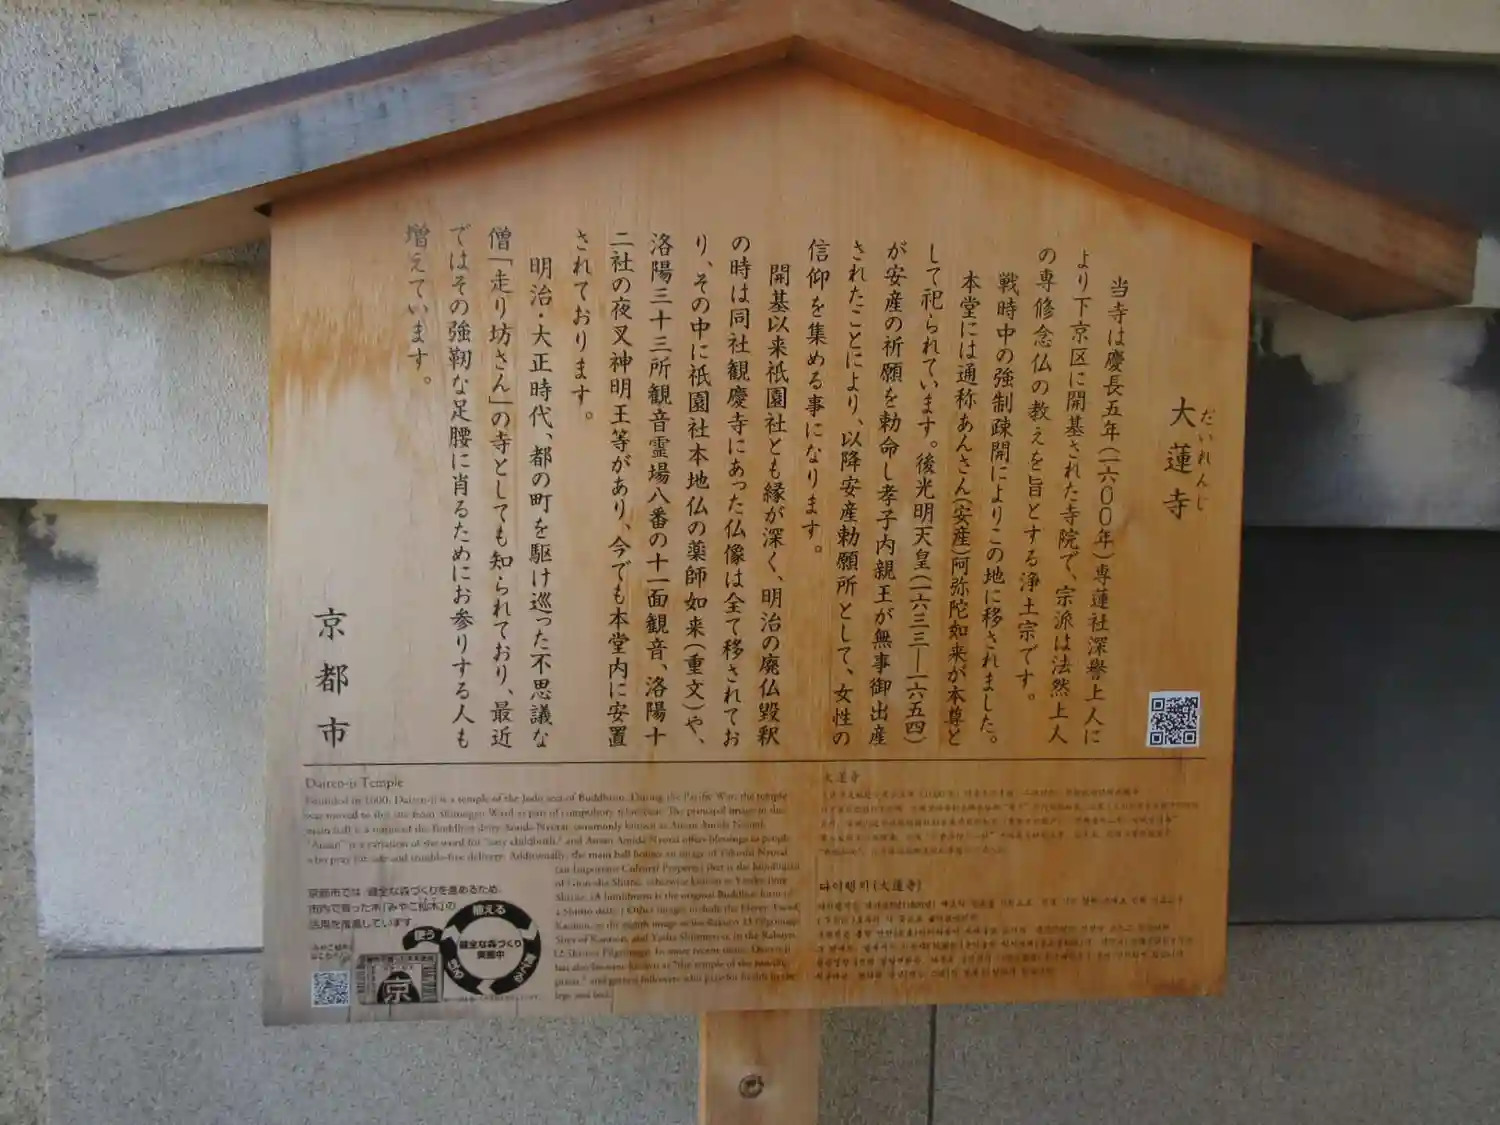 大蓮寺
だいれんじ
当寺は慶長五年(一六〇〇年)専蓮社深誉上人に
より下京区に開基された寺院で、宗派は法然上人
の専修念仏の教えを旨とする浄土宗です。
戦時中の強制疎開によりこの地に移されました。
本堂には通称あんさん(安産)阿弥陀如来が本尊と
して祀られています。後光明天皇(一六三三―一六五四)
が安産の祈願を勅命し孝子内親王が無事御出産
されたことにより、以降安産勅願所として、女性の
信仰を集める事になります。
開基以来祇園社とも縁が深く、明治の廃仏毀釈
の時は同社観慶寺にあった仏像は全て移されてお
り、その中に祇園社本地仏の薬師如来(重文)や、
洛陽三十三所観音霊場八番の十一面観音、洛陽十
二社の夜叉神明王等があり、今でも本堂内に安置
されております。
明治・大正時代、都の町を駆け巡った不思議な
僧「走り坊さん」の寺としても知られており、最近
ではその強靭な足腰に肖るためにお参りする人も
増えています。
京都市
Dairen-ji Temple
Founded in 1600, Dairen-ji is a temple of the Jodo sect of Buddhism. During the Pacific War, the temple
was moved to this site from Shimogyo Ward as part of compulsory relocation. The principal image in the
main hall is a statue of the Buddhist deity Amida Nyorai, commonly known as Ansan Amida Nyorai.
"Ansan" is a variation of the word for "easy childbirth," and Ansan Amida Nyorai offers blessings to people
who pray for safe and trouble-free delivery. Additionally, the main hall houses an image of Yakushi Nyorai
(an Important Cultural Property) that is the honjibutsu
of Gion-sha Shrine, otherwise known as Yasaka Jinja
Shrine. (A honjibutsu is the original Buddhist form of
a Shinto deity.) Other images include the Eleven-Faced
Kannon, in the eighth image of the Rakuyo 33 Pilgrimage
Sites of Kannon, and Yasha Shinmyo-o, in the Rakuyo
12 Shrines Pilgrimage. In more recent times, Dairen-ji
has also become known as "the temple of the running
priest," and getting followers who pray for health in the
legs and feet.
大蓮寺
다이렌지(大蓮寺)
京都市では 健全な森づくりを進めるため、
市内で育った木「みやこ杣木」の
活用を推進しています
植える
使う
健全な森づくり
実施中
京